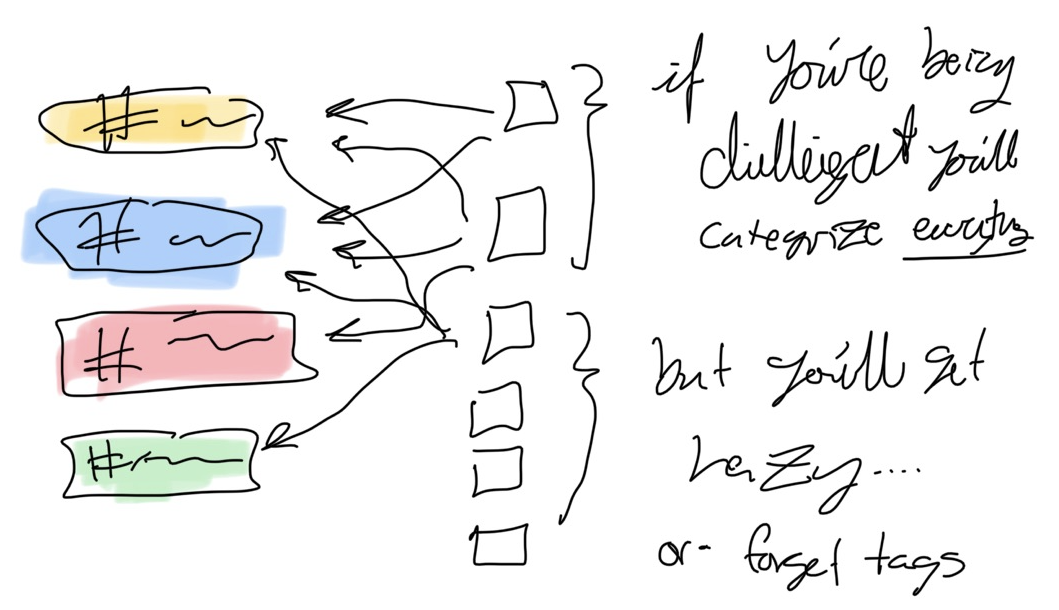 #
#
#
#
if you're being
dilleigent you'll
categrize everything
but you'll get
lazy....
or forget tags